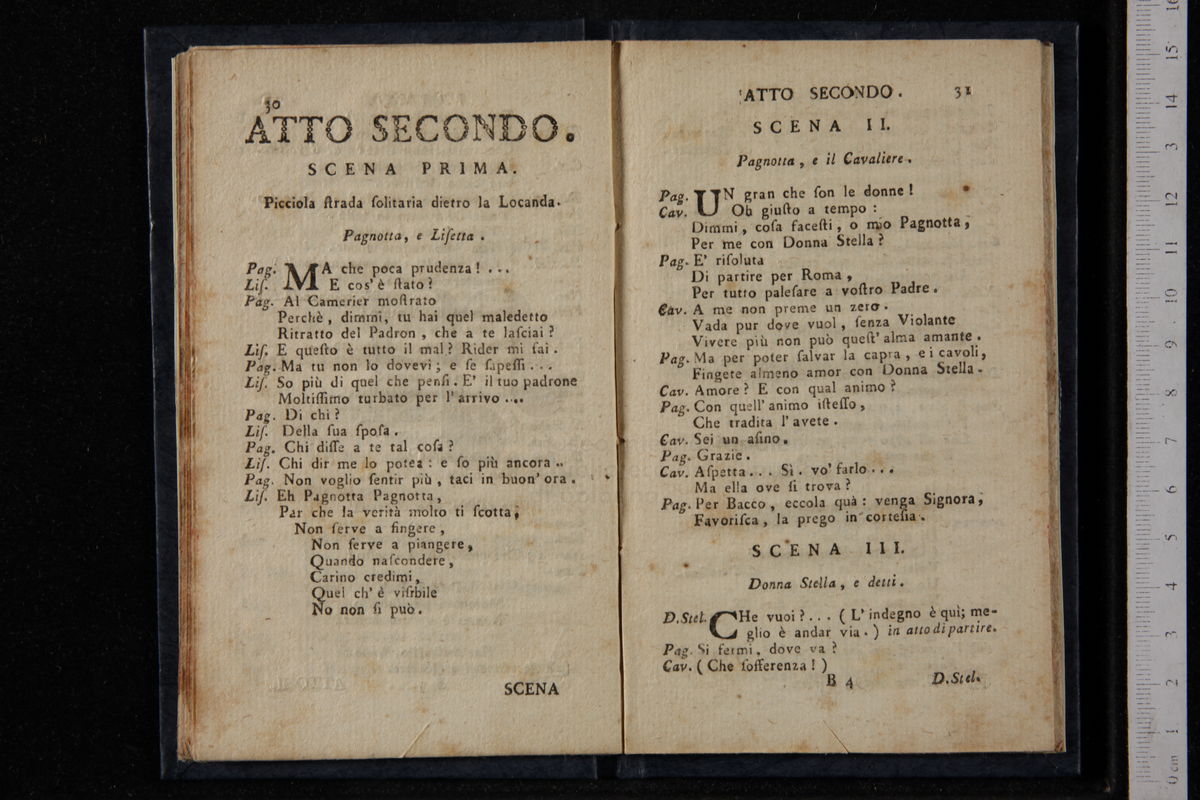 30
ATTO SECONDO.
SCENA PRIMA.
Picciola ſtrada ſolitaria dietro la Locanda.
Pagnotta, e Liſetta.
Pag. MA che poca prudenza! ...
Liſ. E cos' è ſtato?
Pag. Al Camerier moſtrato
Perchè, dimmi, tu hai quel maledetto
Ritratto del Padron, che a te laſciai?
Liſ. E queſto è tutto il mal? Rider mi fai.
Pag. Ma tu non lo dovevi; e ſe ſapeſſi ...
Liſ. So più di quel che penſi. E' il tuo padrone
Moltiſſimo turbato per l' arrivo ....
Pag. Di chi?
Liſ. Della ſua ſpoſa.
Pag. Chi diſſe a te tal coſa?
Liſ. Chi dir me lo potea: e ſo più ancora ..
Pag. Non voglio ſentir più, taci in buon' ora.
Liſ. Eh Pagnotta Pagnotta,
Par che la verità molto ti ſcotta;
Non ſerve a fingere,
Non ſerve a piangere,
Quando naſcondere,
Carino credimi,
Quel ch' è viſrbile
No non ſi può.
SCENA
ATTO SECONDO. 31
SCENA II.
Pagnotta, e il Cavaliere.
Pag. UN gran che ſon le donne!
Cav. Oh giuſto a tempo:
Dimmi, coſa faceſti, o mio Pagnotta,
Per me con Donna Stella?
Pag. E' riſoluta
Di partire per Roma,
Per tutto paleſare a voſtro Padre.
Cav. A me non preme un zero.
Vada pur dove vuol, ſenza Violante
Vivere più non può queſt' alma amante.
Pag. Ma per poter ſalvar la capra, e i cavoli,
Fingete almeno amor con Donna Stella.
Cav. Amore? E con qual animo?
Pag. Con quell' animo iſteſſo,
Che tradita l' avete.
Cav. Sei un aſino.
Pag. Grazie.
Cav. Aſpetta... Sì. vo' farlo...
Ma ella ove ſi trova?
Pag. Per Bacco, eccola quà: venga Signora,
Favoriſca, la prego in corteſia.
SCENA III.
Donna Stella, e detti.
D.Stel. CHe vuoi?... (L' indegno è quì; me-
glio è andar via.) in atto di partire.
Pag. Si fermi, dove va?
Cav. (Che ſofferenza!)
B 4 D.Stel.
0 cm 1 2 3 4 5 6 7 8 9 10 11 12 13 14 15 16